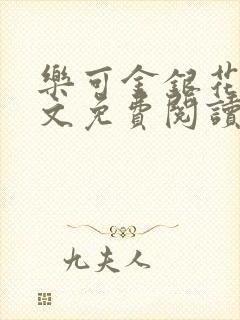 樂可金銀花
文免費閱讀
九夫人